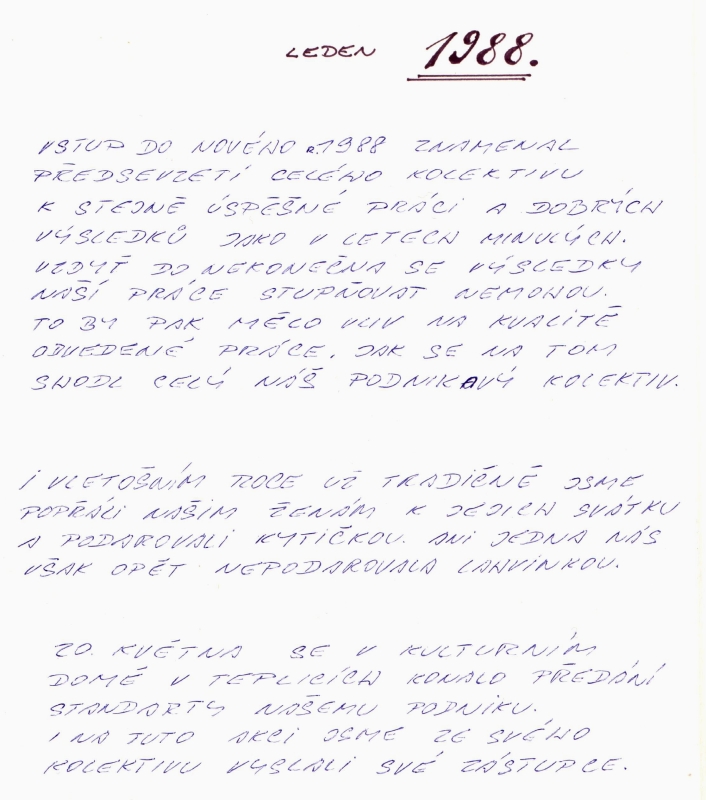 LEDEN 1988.
VSTUP DO NOVÉHO R.1988 ZNAMENAL
PŘEDSEVZETÍ CELÉHO KOLEKTIVU
K STEJNĚ ÚSPĚŠNÉ PRÁCI A DOBRÝCH
VÝSLEDKŮ JAKO V LETECH MINULÝCH.
VZDYŤ DO NEKONEČNA SE VÝSLEDKY
NAŠÍ PRÁCE STUPŇOVAT NEMOHOU.
TO BY PAK MĚLO VLIV NA KVALITĚ
ODVEDENÉ PRÁCE. JAK SE NA TOM
SHODL CELÝ NÁŠ PODNIKAVÝ KOLEKTIV.
I VLETOŠNÍM ROCE UŽ TRADIČNĚ JSME
POPŘÁLI NAŠIM ŽENÁM K JEJICH SVÁTKU
A PODAROVALI KYTIČKOU. ANI JEDNA NÁS
VŠAK OPĚT NEPODAROVALA LAHVINKOU.
20. KVĚTNA SE V KULTURNÍM
DOMĚ V TEPLICÍCH KONALO PŘEDÁNÍ
STANDARTY NAŠEMU PODNIKU.
I NA TUTO AKCI JSME ZE SVÉHO
KOLEKTIVU VYSLALI SVÉ ZÁSTUPCE.